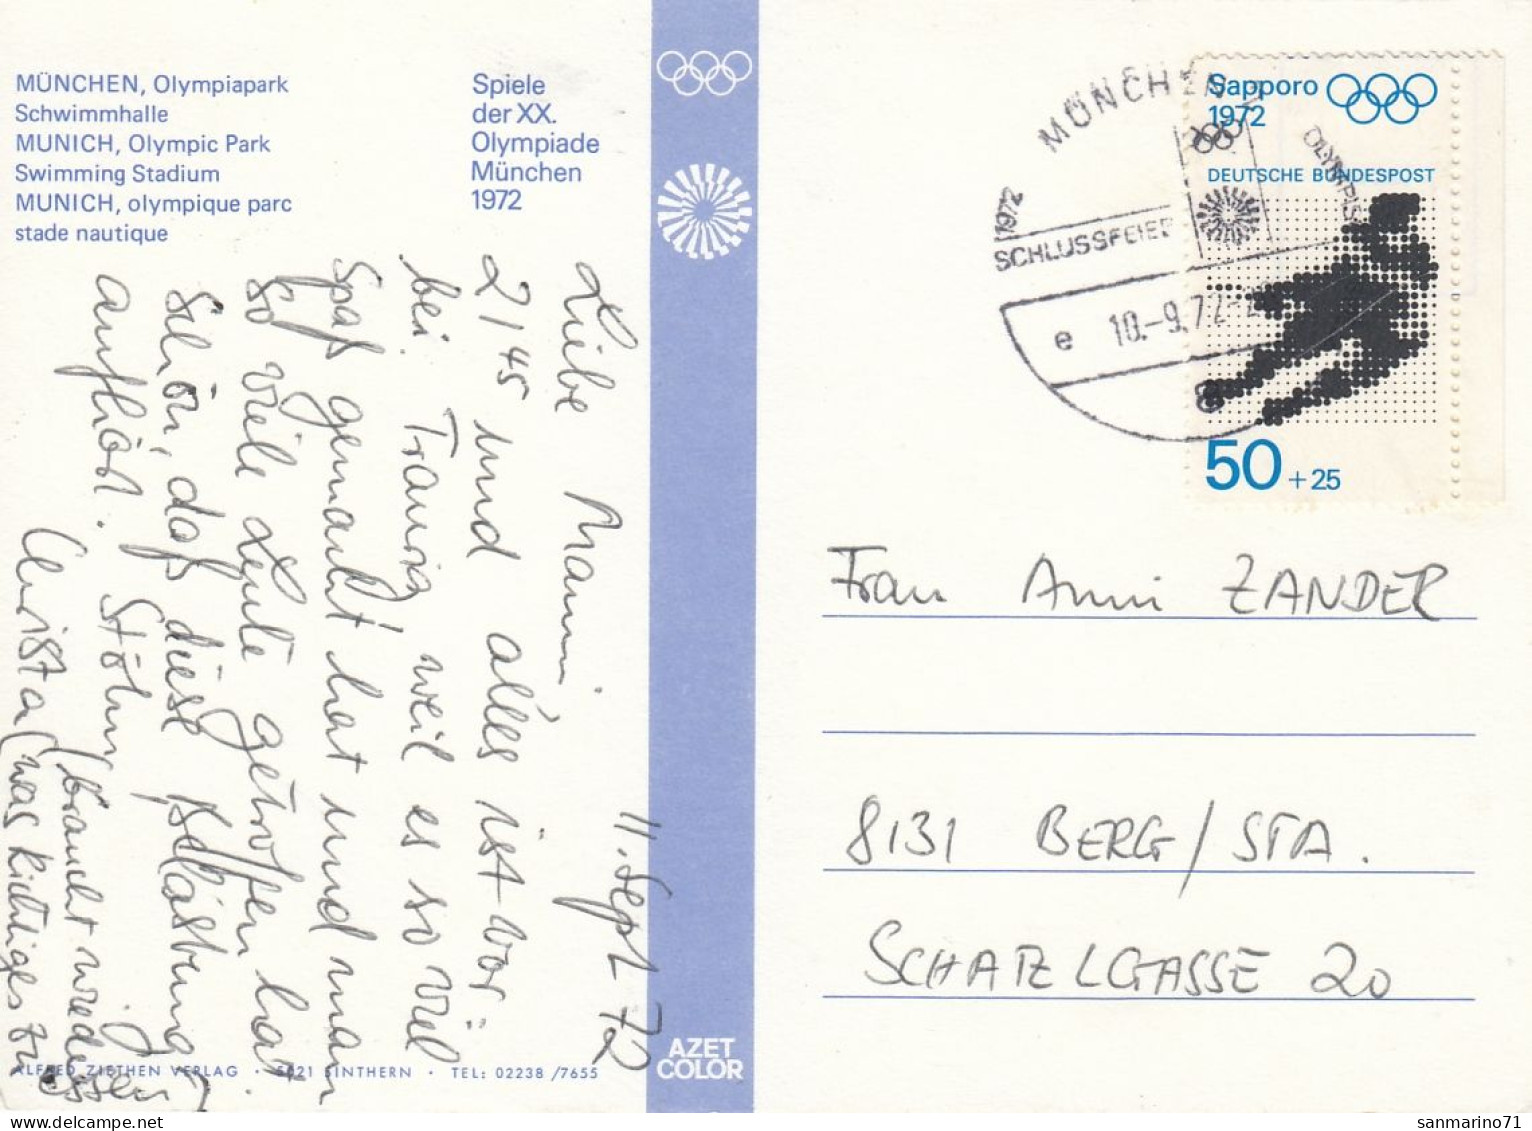 MÜNCHEN, Olympiapark
Schwimmhalle
MUNICH, Olympic Park
Swimming Stadium
MUNICH, olympique parc
stade nautique
Spiele
der XX.
Olympiade
München
1972
11. Sept 72
Liebe Mami,
21⁴⁵ und alles ist vor-
bei. Traurig, weil es so viel
Spaß gemacht hat und man
so viele Leute getroffen hat.
Schön, daß diese Belastung
aufhört. Stöhn,
Christa (braucht wieder
was richtiges zu
essen)
ALFRED ZIETHEN VERLAG · 5021 SINTHERN · TEL: 02238 /7655
AZET
COLOR
MÜNCHEN
1972
OLYMPIS
SCHLUSSFEIER
e 10.-9.72-2
8
Sapporo
1972
DEUTSCHE BUNDESPOST
50 +25
Frau Anni ZANDER
8131 BERG/STA.
SCHATZLGASSE 20
sanmarino71